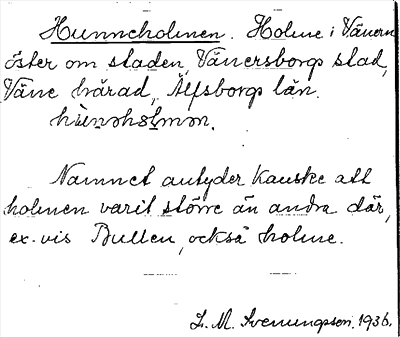 Hunneholmen. Holme i Vänern
öster om staden, Vänersborgs stad,
Väne härad, Älfsborgs län.
Namnet antyder kanske att
holmen varit större än andra där,
ex. vis Bullen, också holme.
L. M. Svenungsson. 1936.